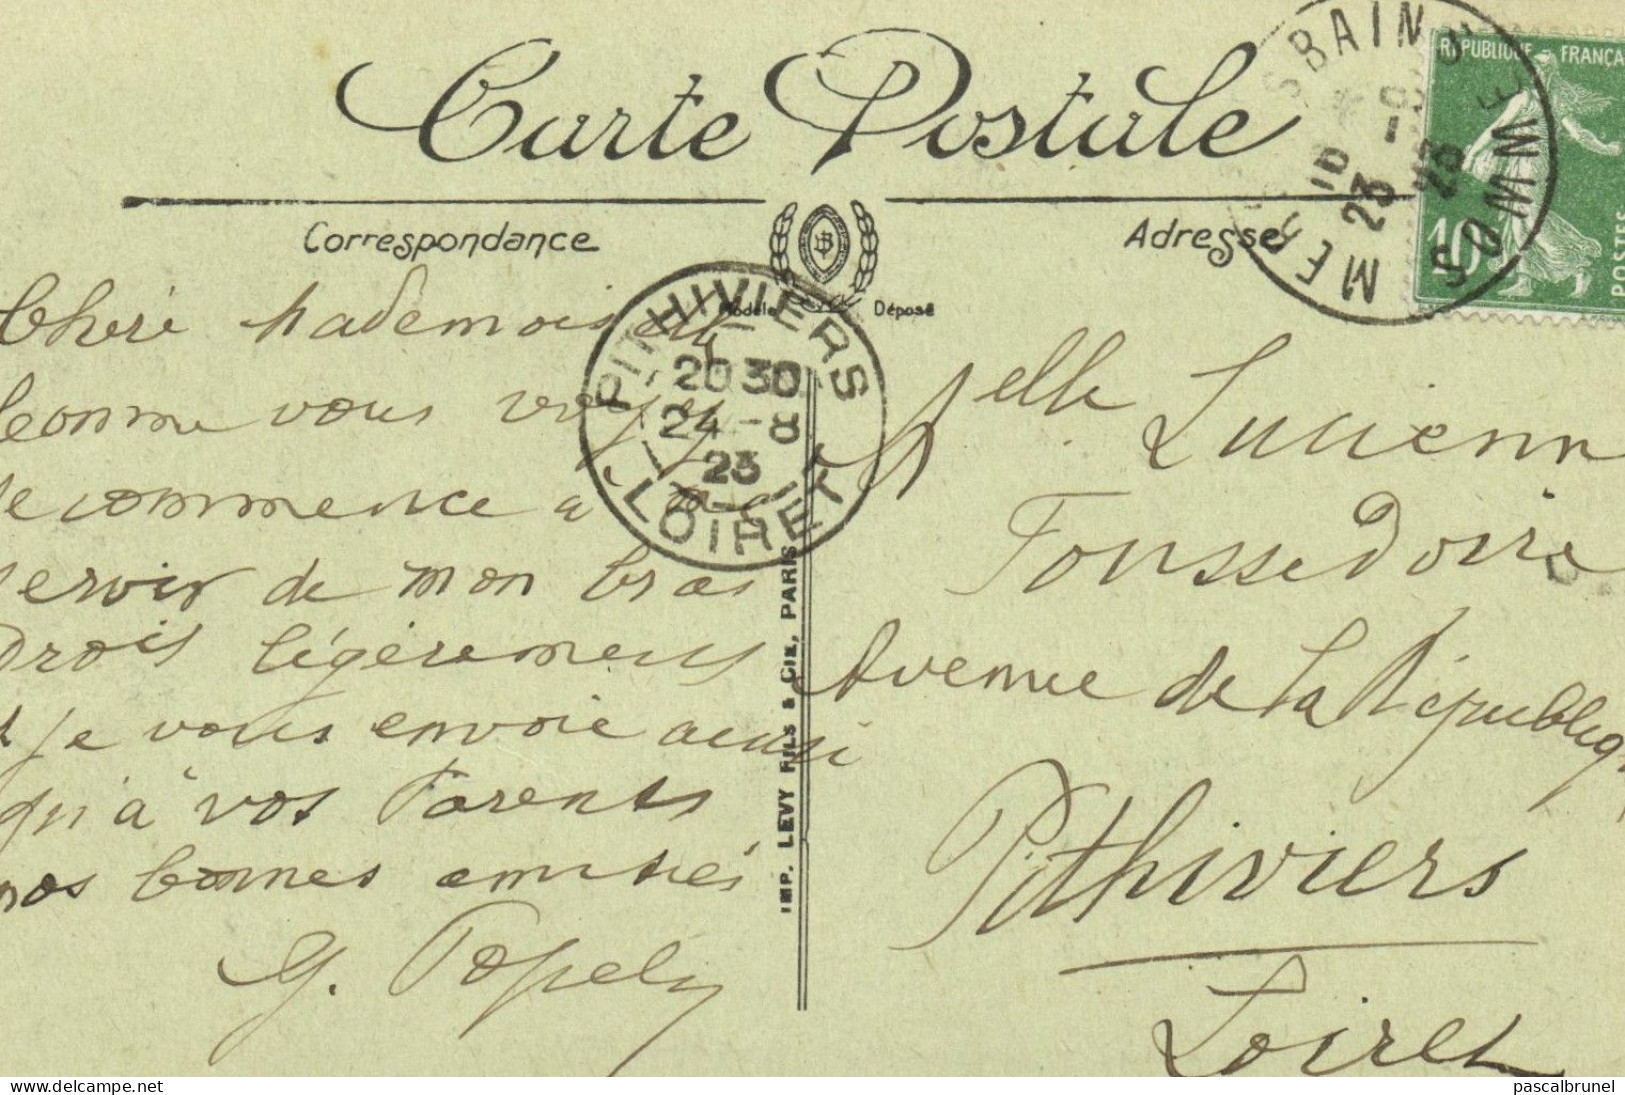 Carte Postale
Correspondance
Adresse
Modèle Déposé
RÉPUBLIQUE FRANÇA
10
POSTES
S BAINS SOMME
MERS
18
23 -8
23
PITHIVIERS
20 30
24 -8
23
LOIRET
IMP. LEVY FILS & CIE, PARIS
Chère Mademoiselle
comme vous voyez
je commence à me
servir de mon bras
Drois légèremens
et je vous envoie ainsi
qu'à vos Parents
nos bonnes amitiés
G. Popelin
Melle Lucienn
Foussedoire
Avenue de la Républiq
Pithiviers
Loiret
pascalbrunel